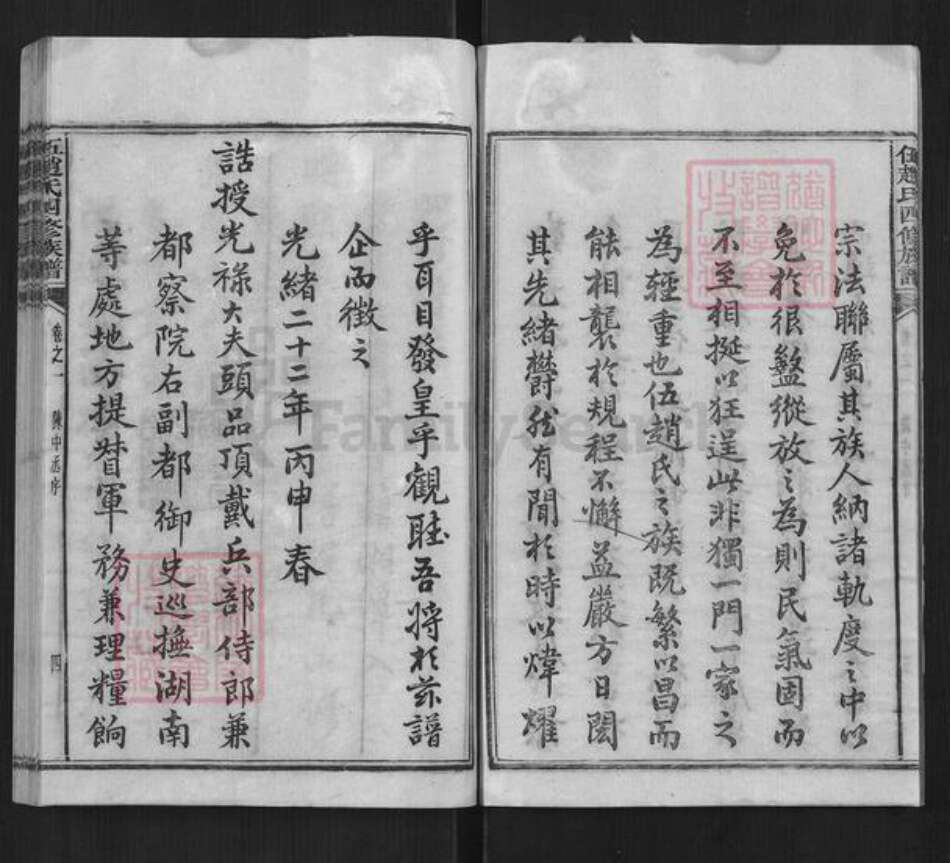 伍趙氏四修族譜
宗法聯屬其族人納諸軌度之中以
免於很盭縱放之為則民氣固而
不至相挻以狂逞此非獨一門一家之
為輕重也伍趙氏之族既繁以昌而
能相襲於規程不懈益嚴方日閎
其先緒欝然有聞於時以煒燿
乎耳目發皇乎觀聽吾將於茲譜
企而徵之
光緒二十二年丙申春
誥授光祿大夫頭品頂戴兵部侍郎兼
都察院右副都御史巡撫湖南
等處地方提督軍務兼理糧餉
伍趙氏四修族譜
卷之一
陳中丞序
四
FamilySearch